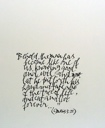 Behold the man has
become like one of
us knowing good
and evil and now
lest he put forth his
hand and take also
of the tree of life
and eat and live
forever